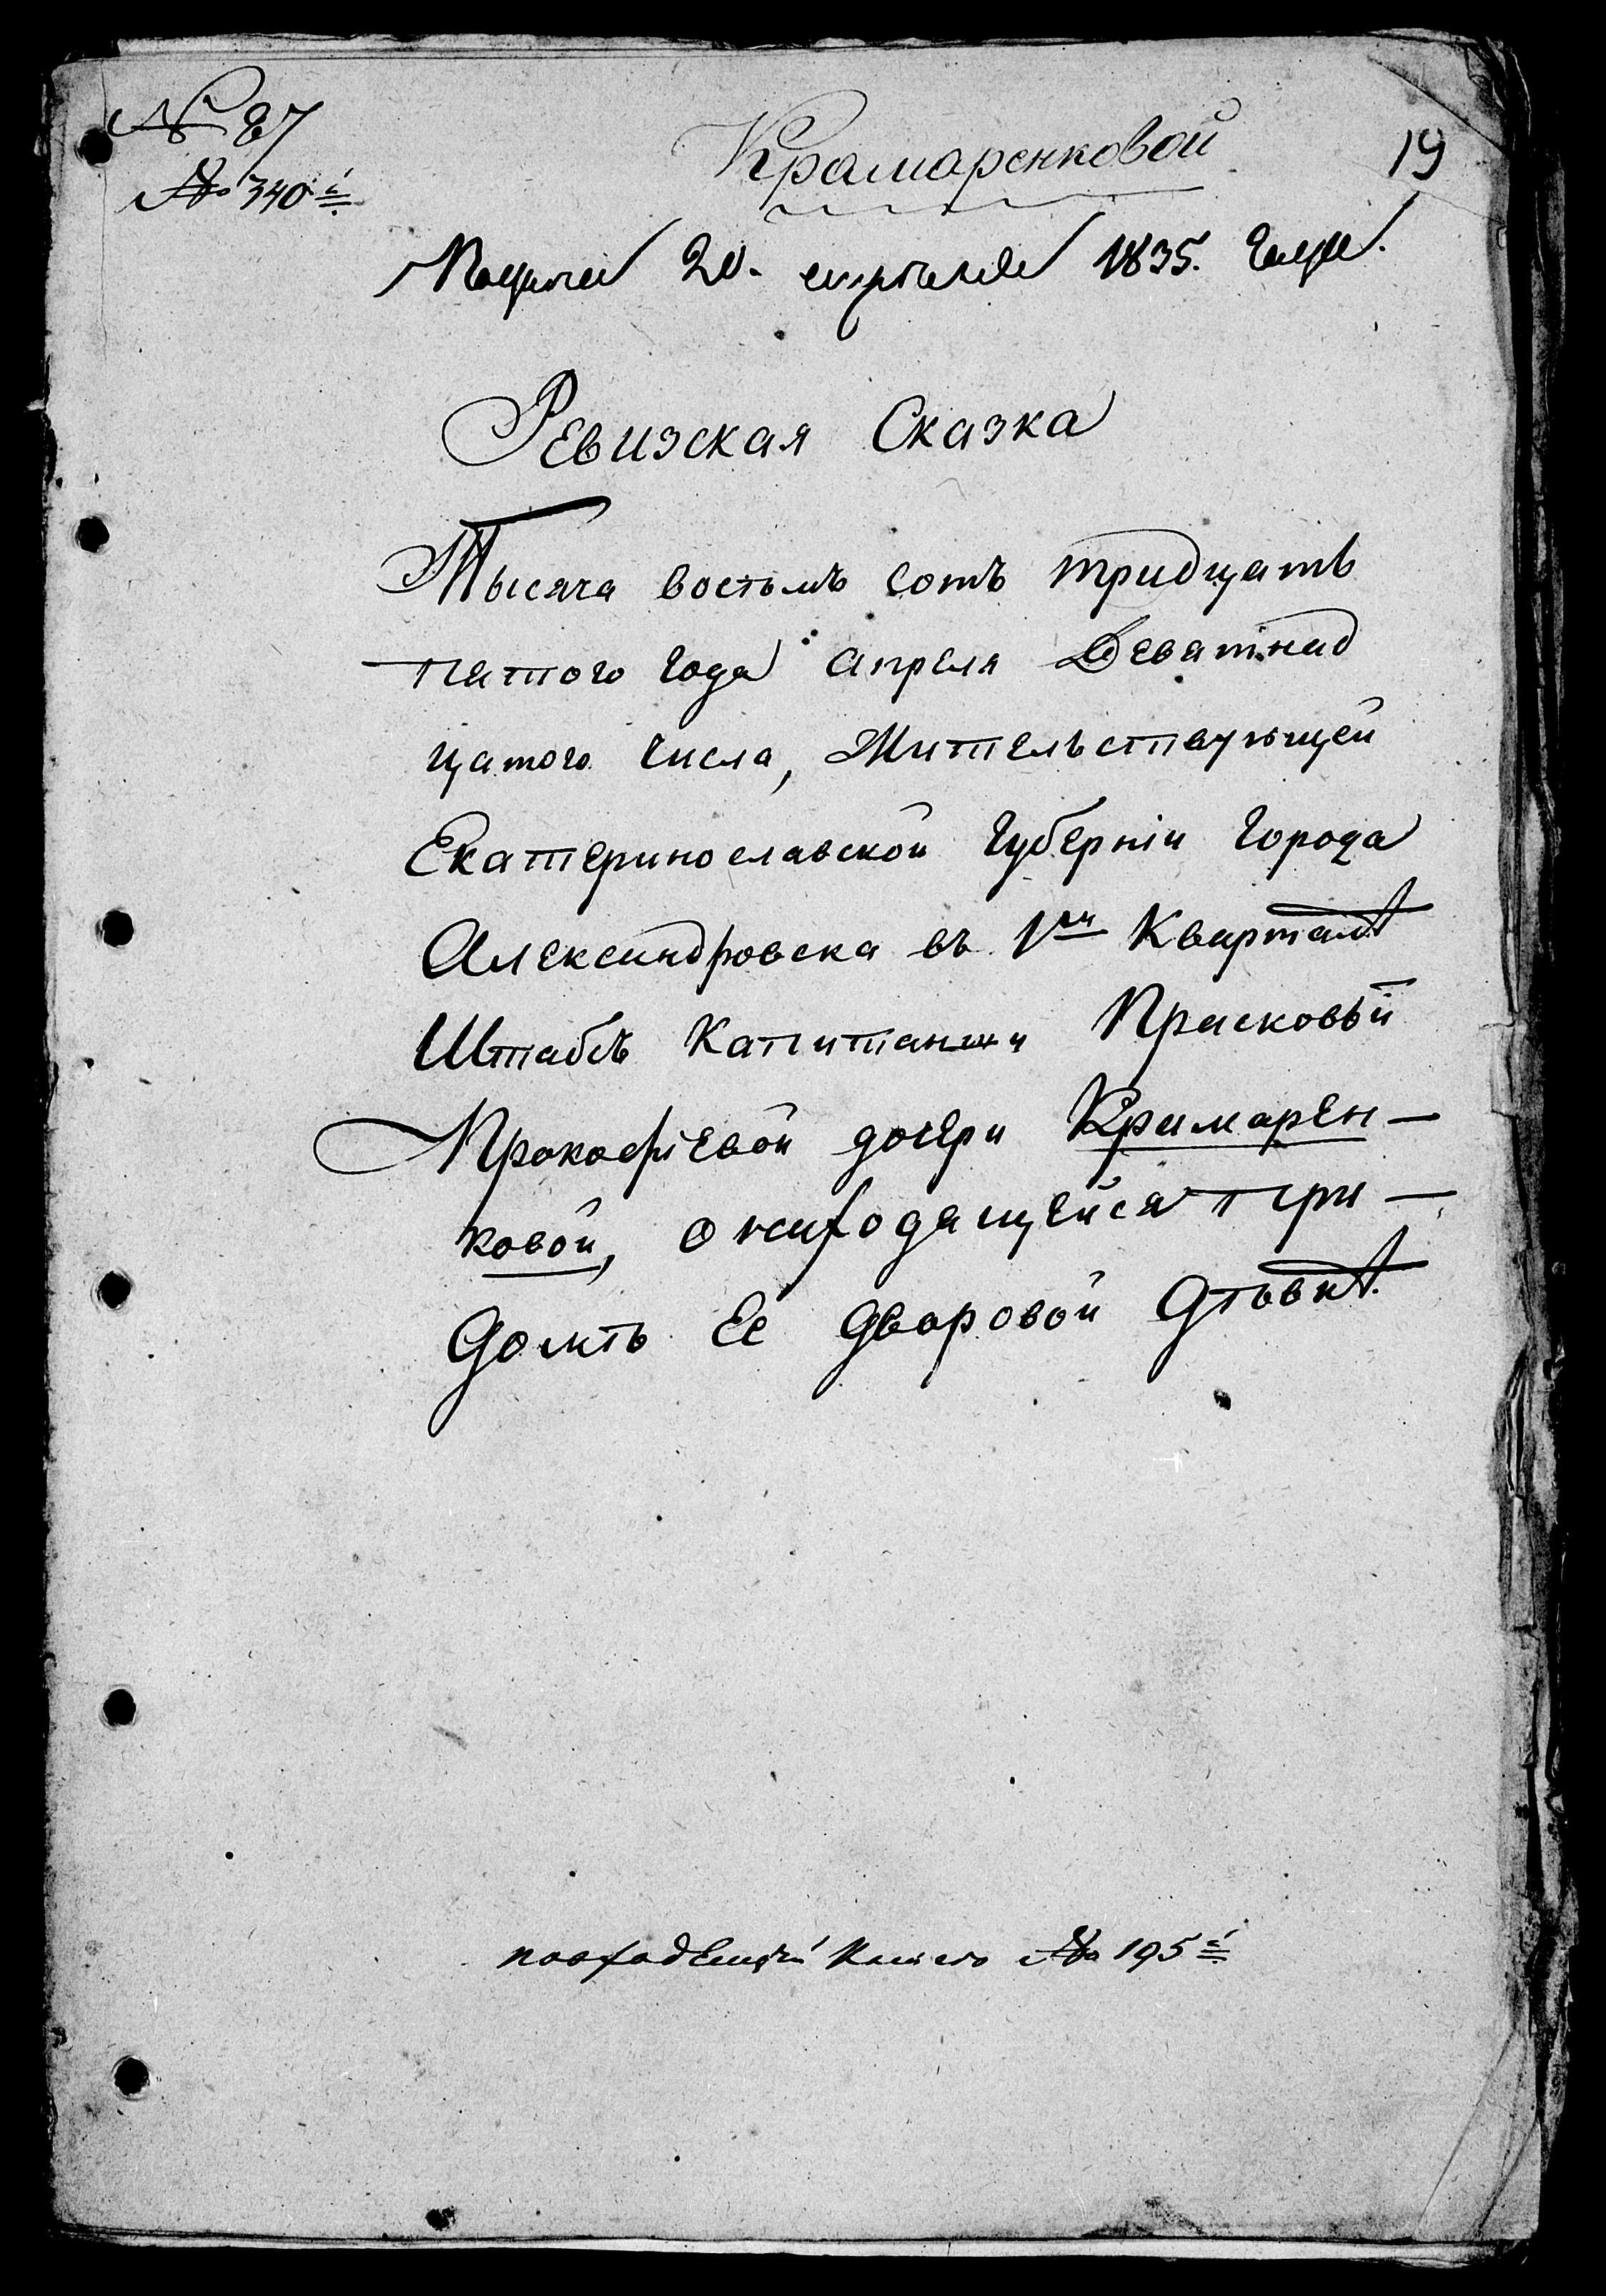 № 87
№ 340й
Крамаренковой
19
Подана 20. апреля 1835. года.
Ревизская Сказка
Тысяча востьмъ сотъ тридцать
пятого года апреля Деватнад
цатого числа, Жительствующей
Екатеринославской Губерніи Города
Александровска въ 1м Квартале
Штабсъ Капитанши Прасковьи
Прокофіевой дочери Крамарен-
ковой, о находящейся при-
доме Ее дворовой дѣвке.
№ 195й